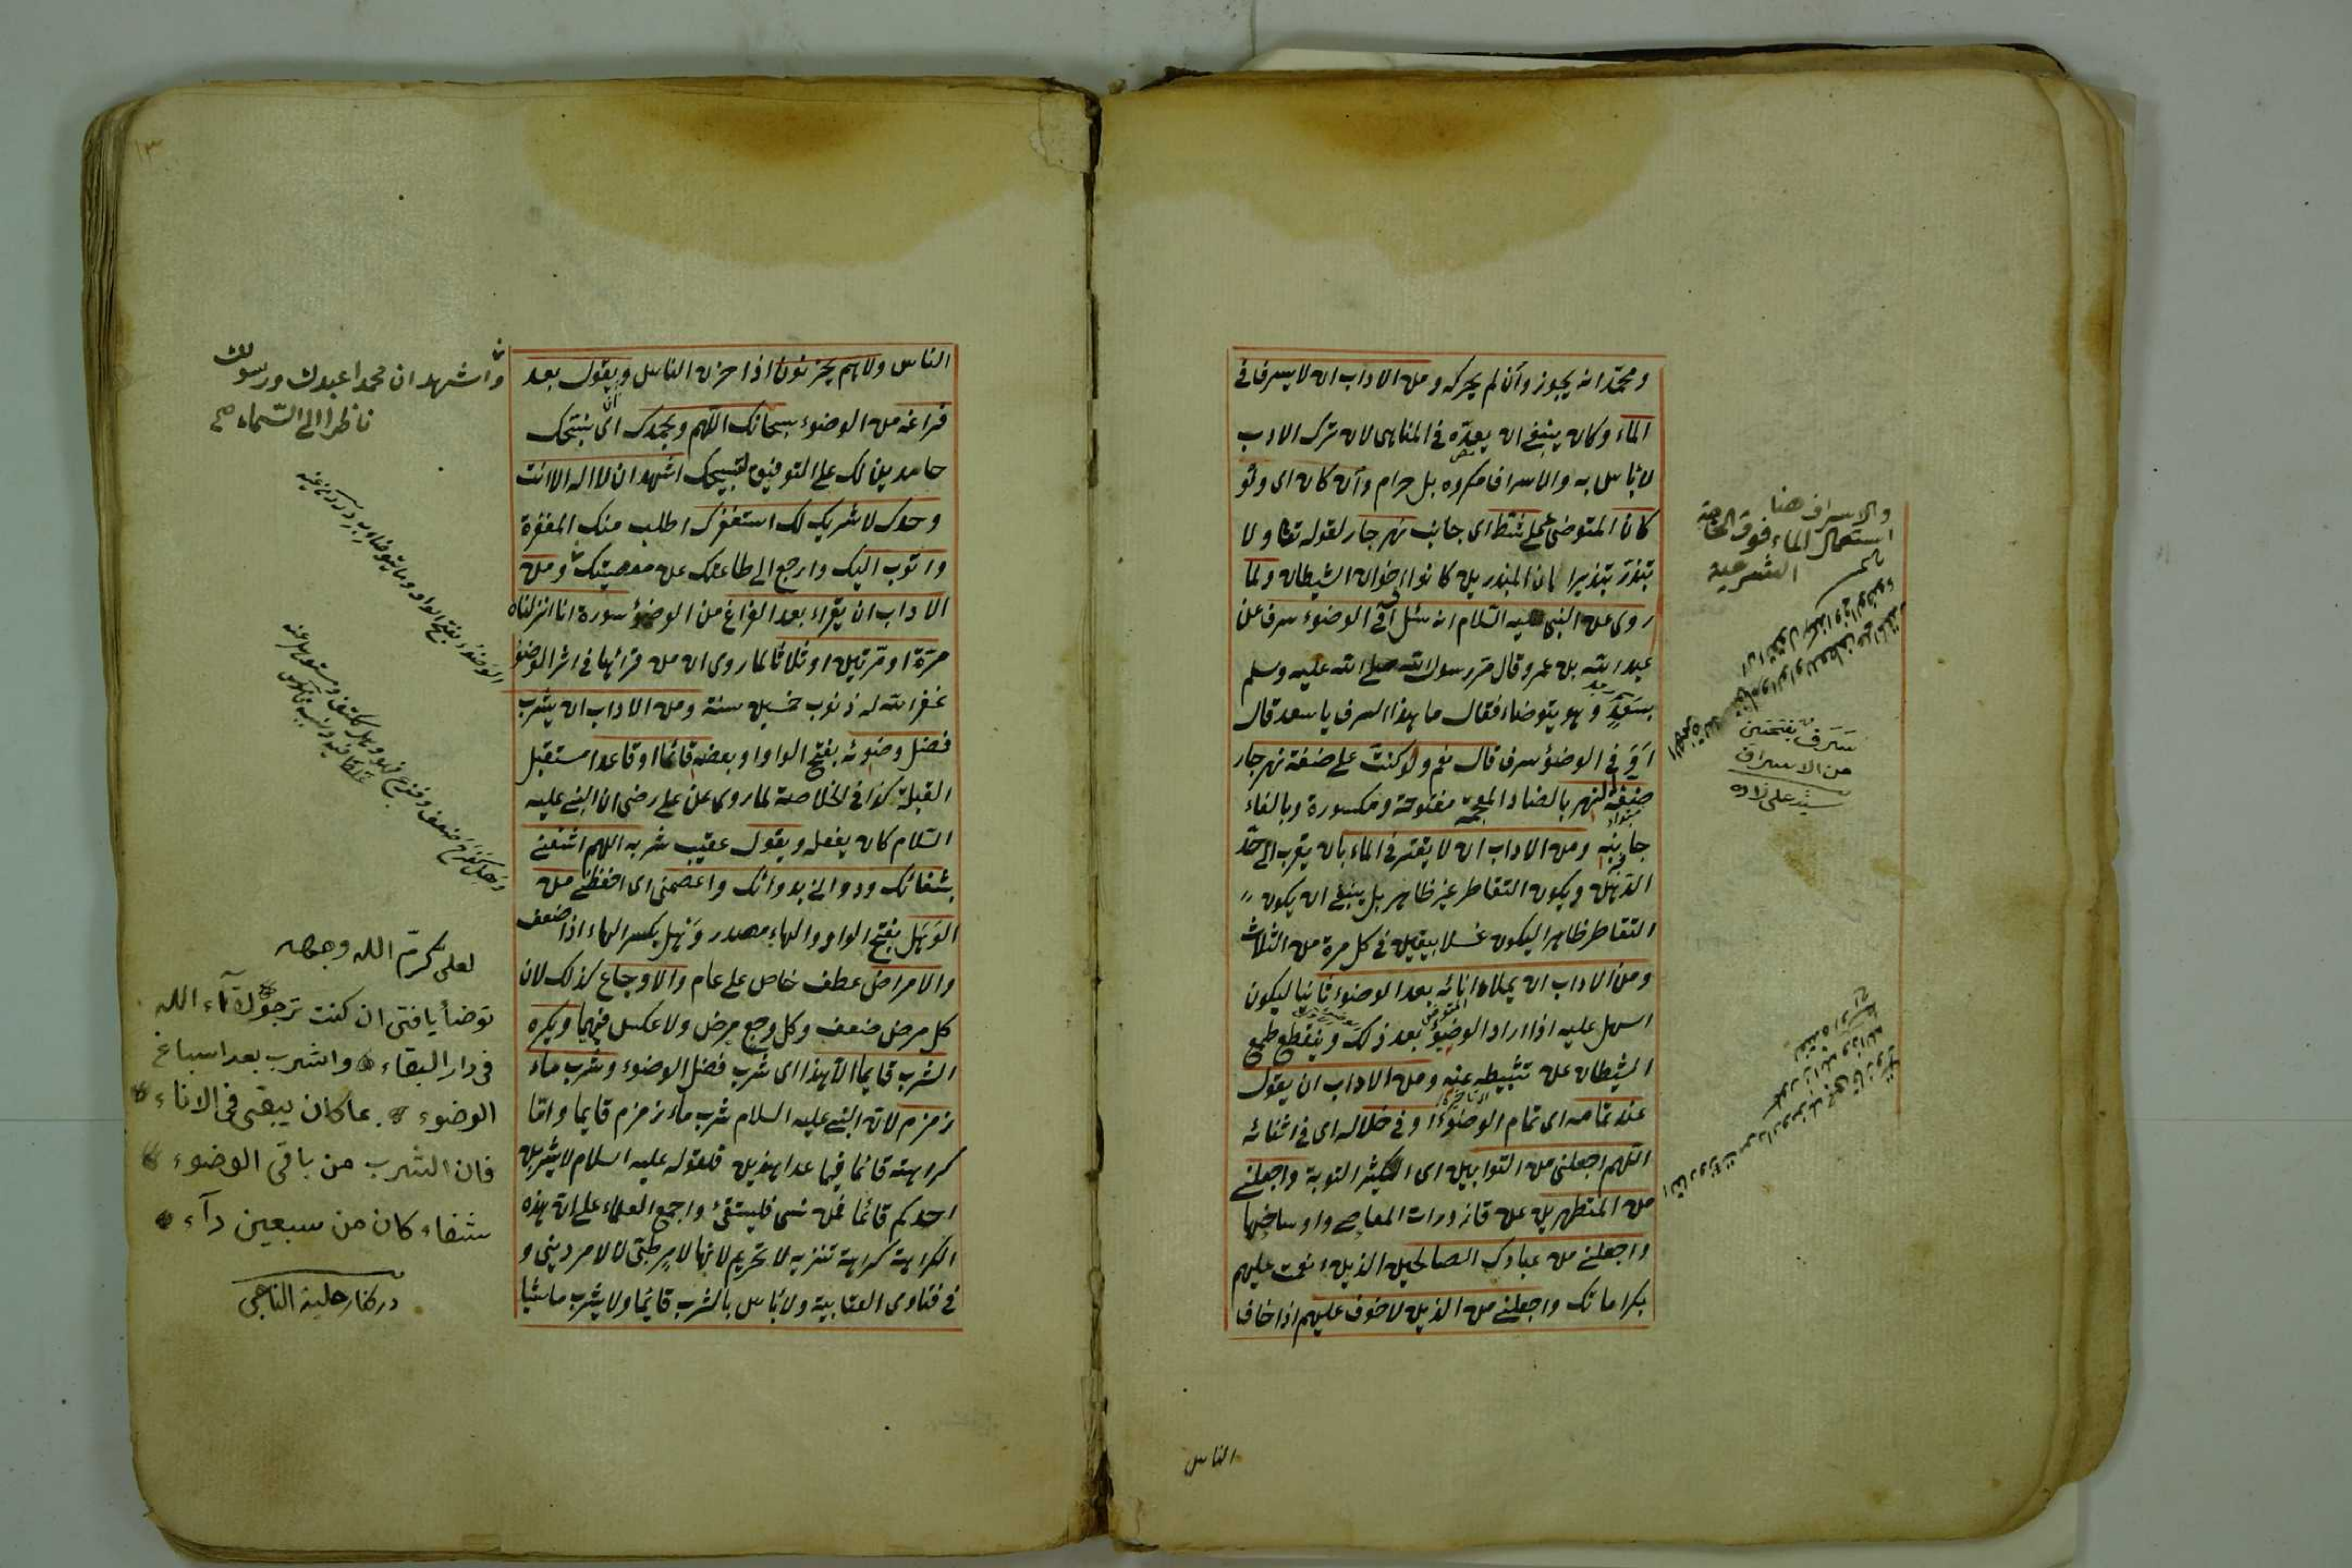 ومحمد انه يجوز وان لم يحركه ومن الاداب ان لا يسرف فى
الماء وكان ينبغى ان يعده فى المناهى لان ترك الادب
لا بأس به والاسراف مكروه بل حرام وان كان اى ولو
كان المتوضئ على شط اى جانب نهر جار لقوله تعا ولا
تبذر تبذيرا ان المبذرين كانوا اخوان الشيطان ولما
روى عن النبى عليه السلام انه سئل أفى الوضوء سرف عن
عبد الله بن عمرو قال مر رسول الله صلى الله عليه وسلم
بسعد وهو يتوضاء فقال ما هذا السرف يا سعد قال
أوفى الوضوء سرف قال نعم ولو كنت على ضفة نهر جار
ضفة النهر بالضاد المعجمة مفتوحة ومكسورة وبالفاء
جانبه ومن الاداب ان لا يقتر فى الماء بان يقرب الى حد
الدهن ويكون التقاطر غير ظاهر بل ينبغى ان يكون
التقاطر ظاهرا ليكون غسلا بيقين فى كل مرة من الثلاث
ومن الاداب ان يملاء انائه بعد الوضوء ثانيا ليكون
اسهل عليه اذا اراد الوضوء بعد ذلك وينقطع طمع
الشيطان عن تثبيطه عنه ومن الاداب ان يقول
عند تمامه اى تمام الوضوء او فى خلاله اى فى اثنائه
اللهم اجعلنى من التوابين اى الكثير التوبة واجعلنى
من المتطهرين عن قاذورات المعاصى واوساخها
واجعلنى من عبادك الصالحين الذين انعمت عليهم
بكراماتك واجعلنى من الذين لا خوف عليهم اذا خاف
الناس
والاسراف هنا
استعمال الماء فوق الحاجة
الشرعية
سرف بفتحتين
من الاسراف
سيد على زاده
الناس ولا هم يحزنون اذا حزن الناس ويقول بعد
فراغه من الوضوء سبحانك اللهم وبحمدك اى نسبحك
حامدين لك على التوفيق لتسبيحك اشهد ان لا اله الا انت
وحدك لا شريك لك استغفرك اطلب منك المغفرة
واتوب اليك وارجع الى طاعتك عن معصيتك ومن
الاداب ان يقراء بعد الفراغ من الوضوء سورة انا انزلناه
مرة او مرتين او ثلاثا لما روى ان من قرائها فى اثر الوضوء
غفر الله له ذنوب خمسين سنة ومن الاداب ان يشرب
فضل وضوئه بفتح الواو او بعضه قائما او قاعدا مستقبل
القبلة كذا فى الخلاصة لما روى عن على رضى ان النبى عليه
السلام كان يفعله ويقول عقيب شربه اللهم اشفنى
بشفائك وداونى بدوائك واعصمنى اى احفظنى من
الوهل بفتح الواو والهاء مصدر وهل بكسر الهاء اذا ضعف
والامراض عطف خاص على عام والاوجاع كذلك لان
كل مرض ضعف وكل وجع مرض ولا عكس فيهما ويكره
الشرب قايما الا هذا اى شرب فضل الوضوء وشرب ماء
زمزم لان النبى عليه السلام شرب ماء زمزم قايما واما
كراهته قائما فيما عدا هذين فلقوله عليه السلام لا يشربن
احدكم قائما فمن نسى فليستقئ واجمع العلماء على ان هذه
الكراهة كراهة تنزيه لا تحريم لانها لامر طبى لا لامر دينى و
فى فتاوى العتابية ولا بأس بالشرب قائما ولا يشرب ماشيا
واشهد ان محمدا عبدك ورسولك
ناظرا الى السماء صح
لعلى كرم الله وجهه
توضأ يا فتى ان كنت ترجو لقآء الله
فى دار البقاء واشرب بعد اسباغ
الوضوء بما كان يبقى فى الاناء
فان الشرب من باقى الوضوء
شفاء كان من سبعين دآء
در كنار حلية الناجى